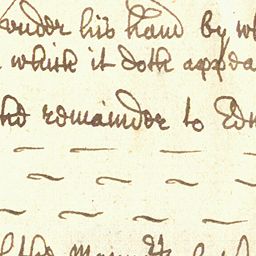 under his hand by
which it doth appea
the remainder to Edm